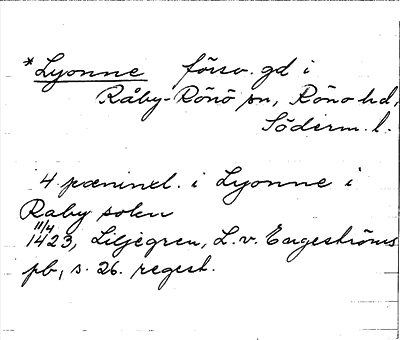 *Lyonne försv. gd i
Råby-Rönö sn, Rönö hd,
Söderm. l.
4 pæninxl. i Lyonne i
Raby sokn
11/4
1423, Liljegren, L. v. Engeströms
pb, s. 26. regest.